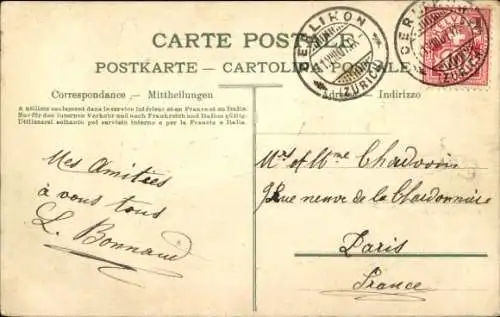 CARTE POSTALE
POSTKARTE — CARTOLINA POSTALE
Correspondance — Mittheilungen
A utiliser seulement dans le service intérieur et en France et en Italie.
Nur für den internen Verkehr und nach Frankreich und Italien gültig.
Utilizzarsi soltanto pel servizio interno e per la Francia e Italia.
Indirizzo
OERLIKON
(ZÜRICH)
OERLIKON
(ZÜRICH)
Mes Amitiés
à vous tous
L. Bonnaud
Mr et Mme Chadovin
9 Rue neuve de la Chardonnière
Paris
France